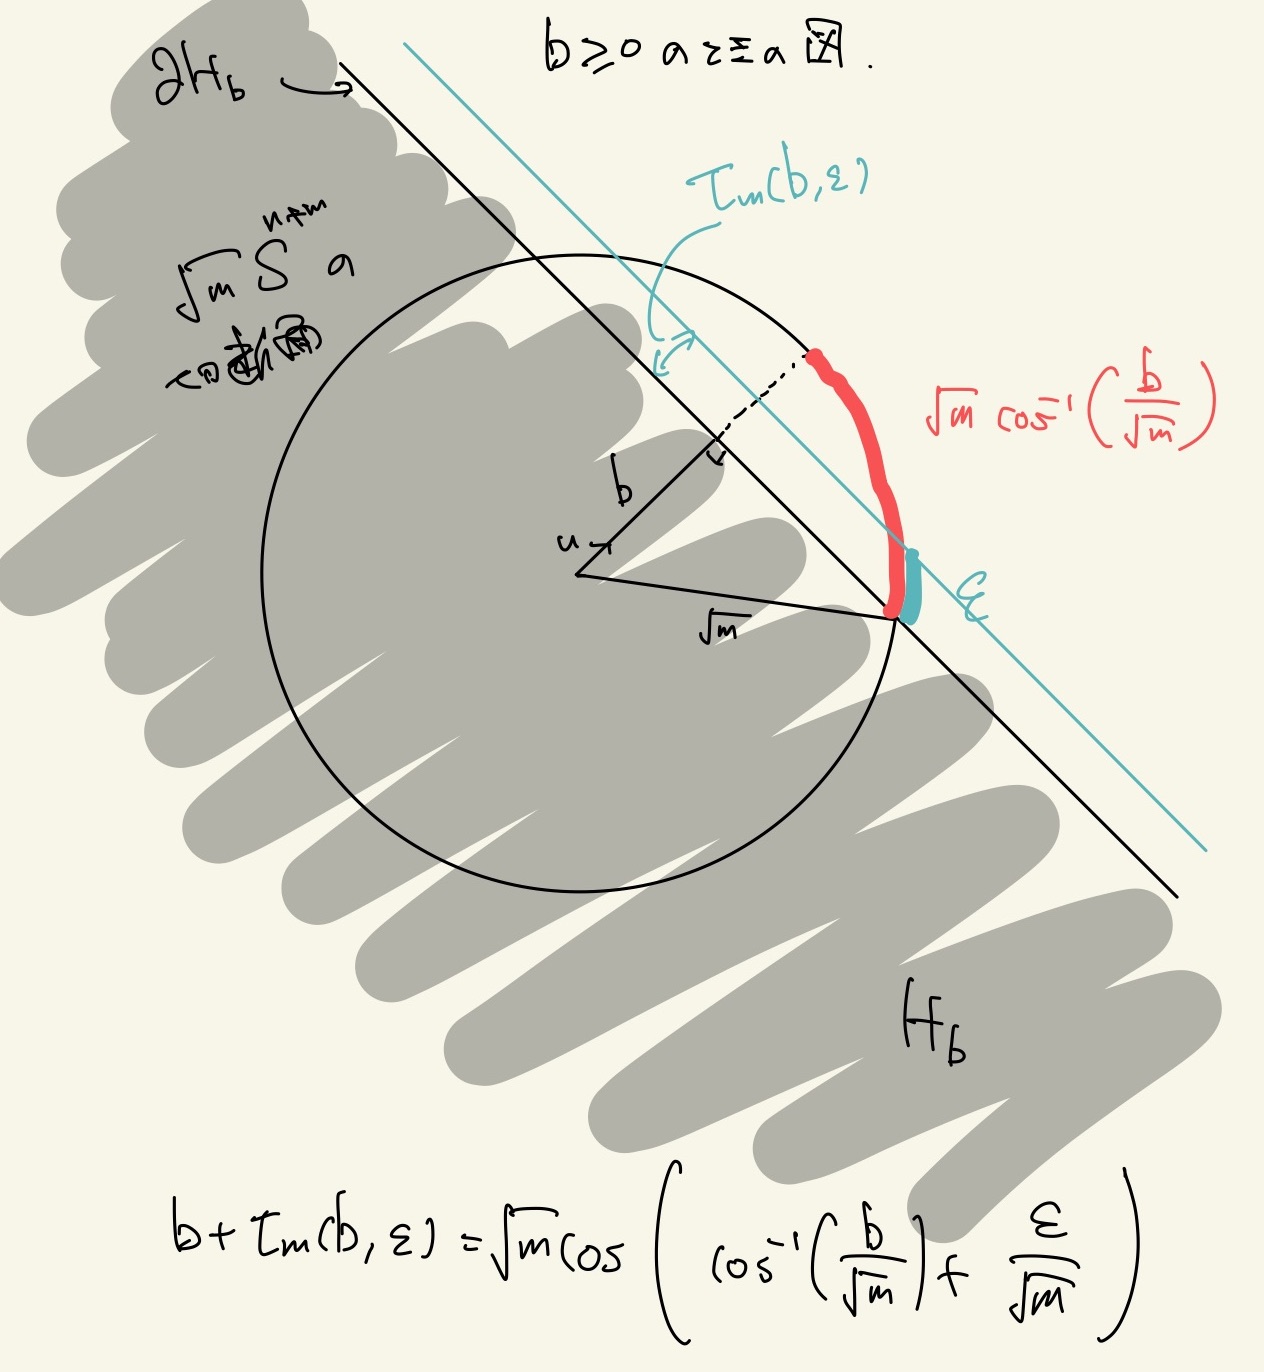 b ≥ 0 のときの図.
∂H_b
τ_m(b, ε)
√m S^{n+m} の
√m cos⁻¹(b/√m)
b
u
√m
ε
H_b
b + τ_m(b, ε) = √m cos(cos⁻¹(b/√m) + ε/√m)